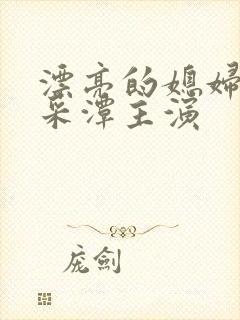 漂亮的媳妇
采潭主演
庞剑